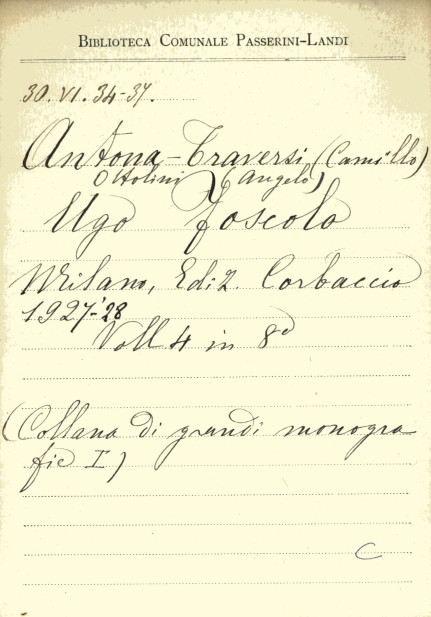 BIBLIOTECA COMUNALE PASSERINI-LANDI
30.VI.34-37.
Antona-Traversi (Camillo)
Ottolini (Angelo)
Ugo Foscolo
Milano, Ediz. Corbaccio
1927-'28
Voll 4 in 8º
(Collana di grandi monogra-
fie I)
C